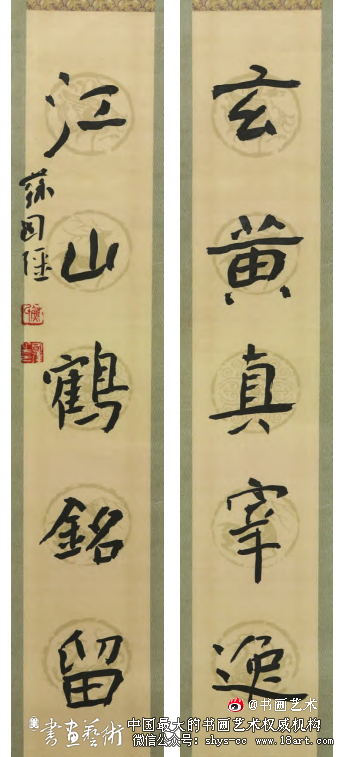 玄黄真宰逸
江山鶴銘留
@书画艺术
書畫藝術
中国最大的书画艺术权威机构
微信公众号: shys-cc www.18art.com